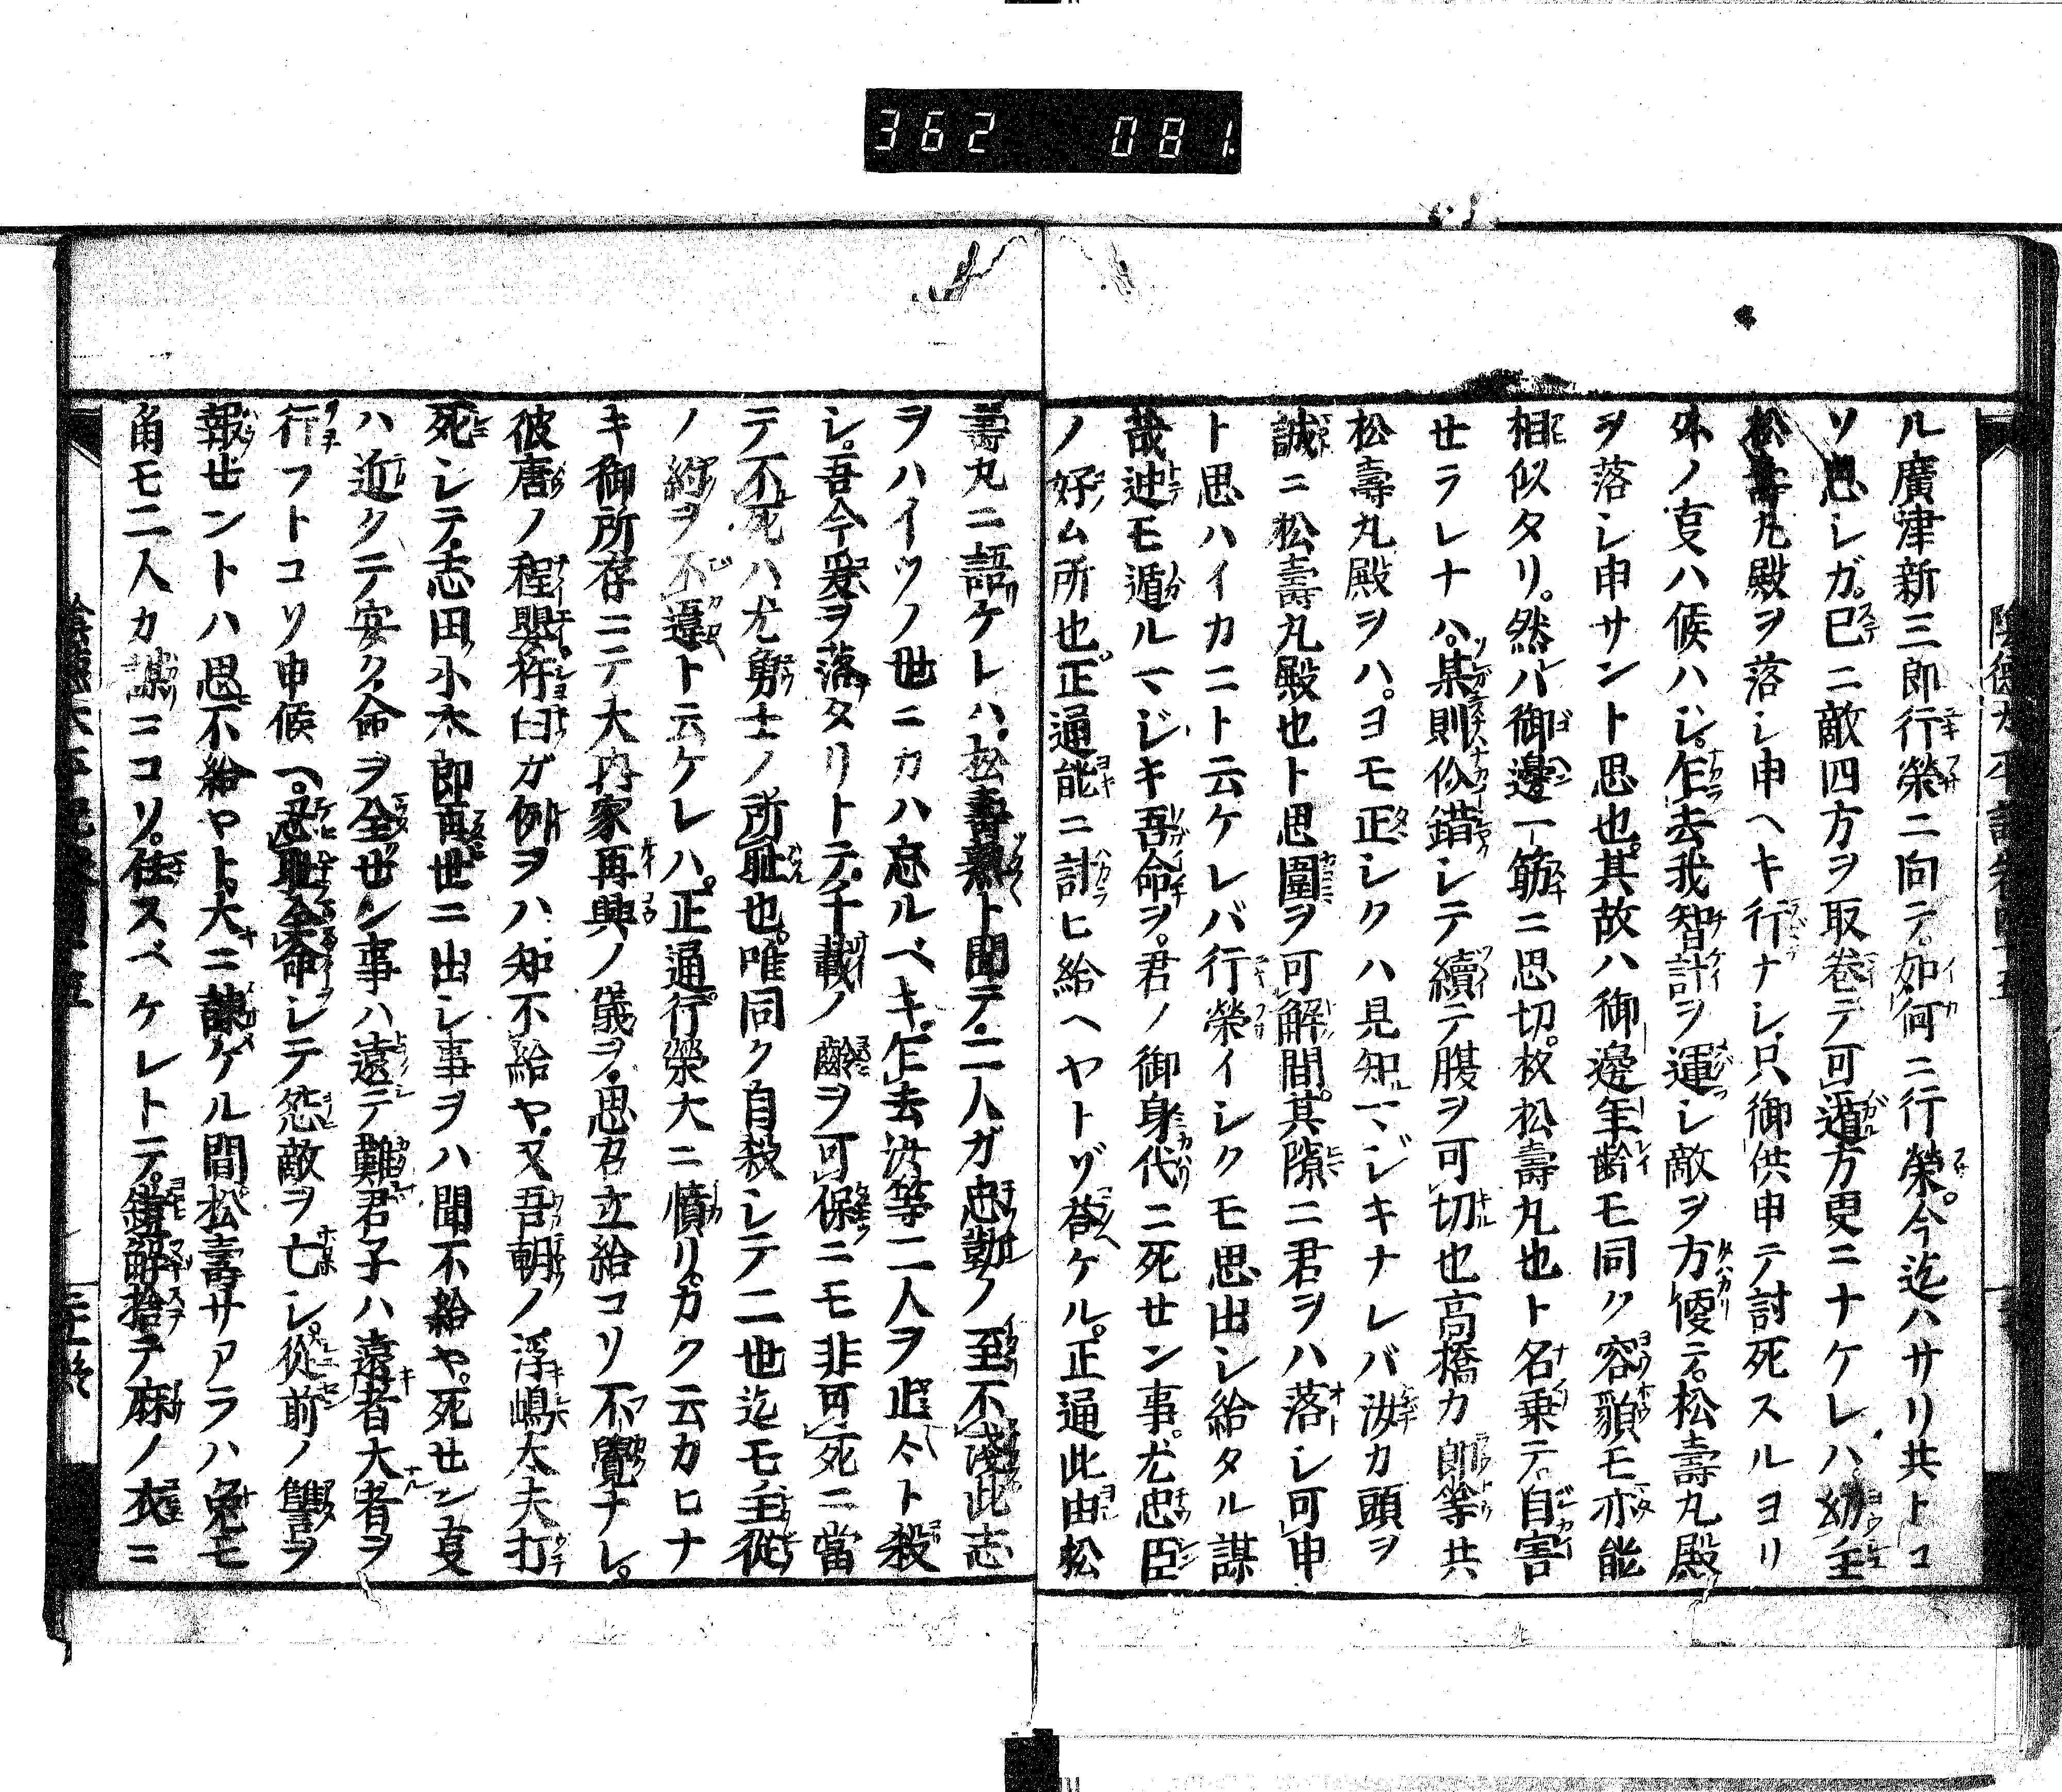 362 081
ル廣津新三郎行榮ニ向テ。如何ニ行榮。今迄ハサリ共トコ
ソ思シガ。已ニ敵四方ヲ取卷テ可遁方更ニナケレハ。幼主
松壽丸殿ヲ落シ申ヘキ行ナシ。只御供申テ討死スルヨリ
外ノ叓ハ候ハシ。乍去我智計ヲ運シ敵ヲ方便テ。松壽丸殿
ヲ落シ申サント思也。其故ハ御邊年齢モ同ク容貌モ亦能
相似タリ。然ハ御邊一筋ニ思切。枚松壽丸也ト名乗テ。自害
セラレナハ。某則介錯シテ續テ腹ヲ可切也高橋カ郎等共
松壽丸殿ヲハ。ヨモ正シクハ見知マジキナレバ汝カ頭ヲ
誠ニ松壽丸殿也ト思圍ヲ可解間。其隙ニ君ヲハ落シ可申
ト思ハイカニト云ケレバ行榮イシクモ思出シ給タル謀
哉迚モ遁ルマジキ吾命ヲ。君ノ御身代ニ死セン事。尤忠臣
ノ好ム所也。正通能ニ計ヒ給ヘヤトゾ荅ケル。正通此由松
壽丸ニ語ケレハ。松壽熟ト聞テ。二人ガ忠勤ノ至不淺此志
ヲハイツノ世ニカハ忘ルベキ。乍去汝等二人ヲ止々ト殺
シ。吾今爰ヲ落タリトテ。千載ノ齢ヲ可保ニモ非可死ニ當
テ不死ハ尤勇士ノ所耻也。唯同ク自殺シテ二世迄モ主從
ノ約ヲ不違ト云ケレハ。正通。行榮大ニ憤リ。カク云カヒナ
キ御所存ニテ大内家再興ノ儀ヲ。思召立給コソ不覺ナレ。
彼唐ノ程嬰杵臼ガ例ヲハ知不給ヤ。又吾朝ノ浮嶋太夫打
死シテ。志田小太郎再世ニ出シ事ヲハ聞不給ヤ。死セン叓
ハ近クテ安ク。命ヲ全セン事ハ遠テ難君子ハ遠者大者ヲ
行フトコソ申候へ。忍耻全命シテ怨敵ヲ亡シ。從前ノ讐ヲ
報せントハ思不給ヤト。大ニ諌ケル間松壽サアラハ兎モ
角モ二人カ謀ニコソ。任スベケレトテ。鎧解捨テ麻ノ衣ニ